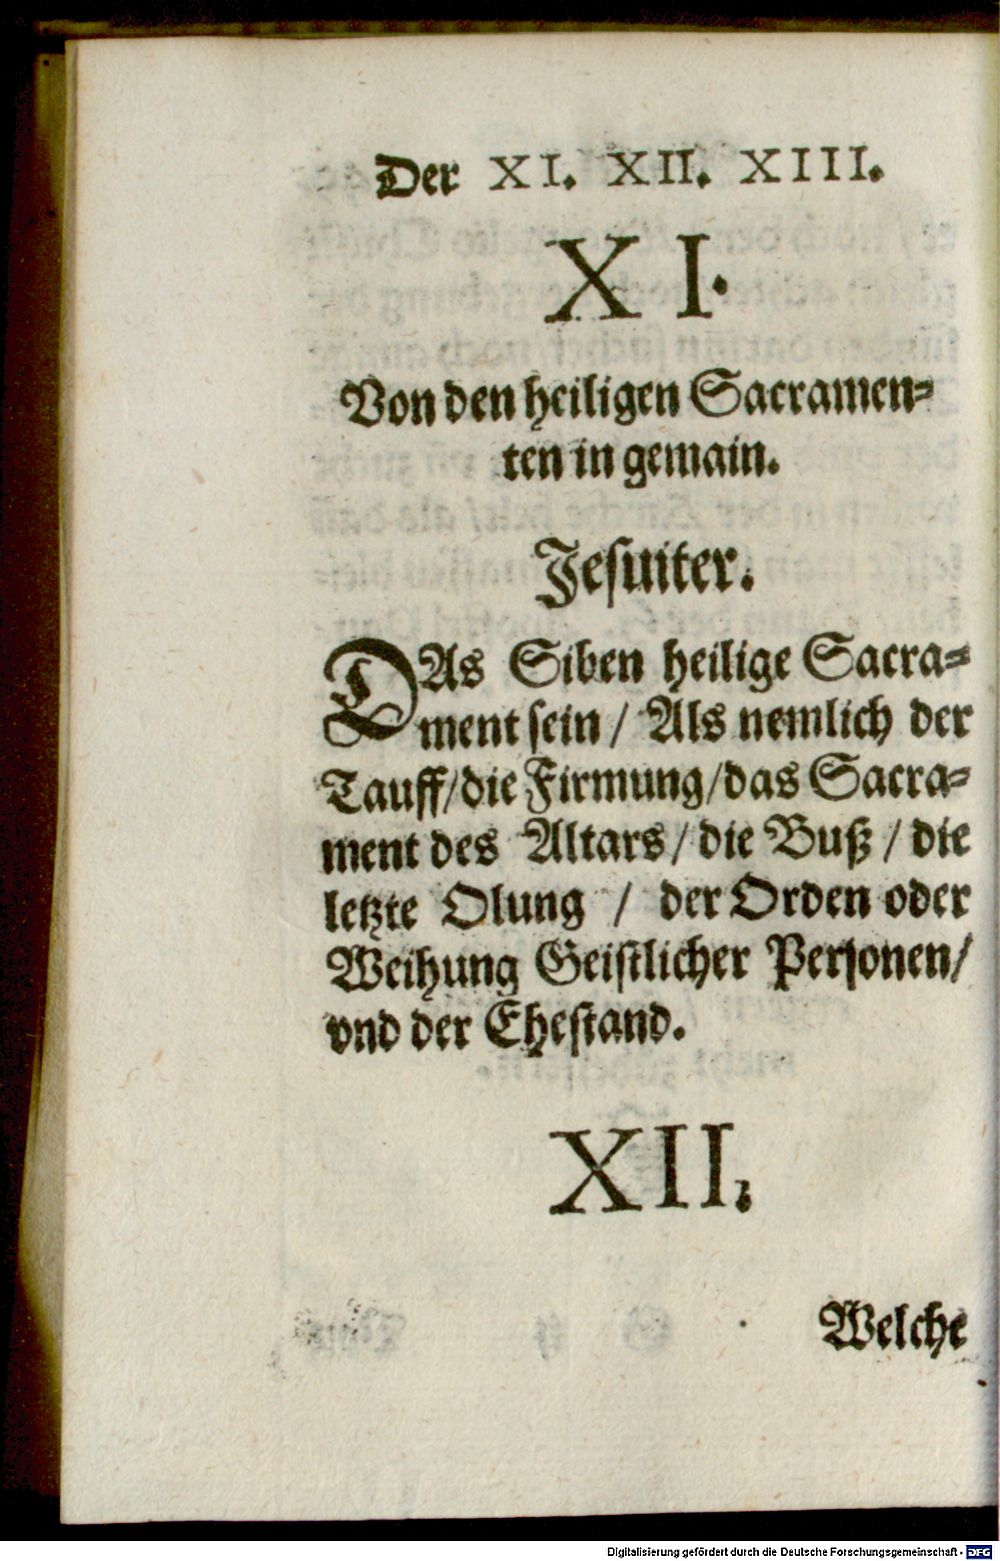 Der XI. XII. XIII.
XI.
Von den heiligen Sacramen-
ten in gemain.
Jesuiter.
DAs Siben heilige Sacra-
ment sein / Als nemlich der
Tauff/die Firmung/das Sacra-
ment des Altars / die Buß / die
letzte Olung / der Orden oder
Weihung Geistlicher Personen/
vnd der Ehestand.
XII.
Welche
Digitalisierung gefördert durch die Deutsche Forschungsgemeinschaft - DFG